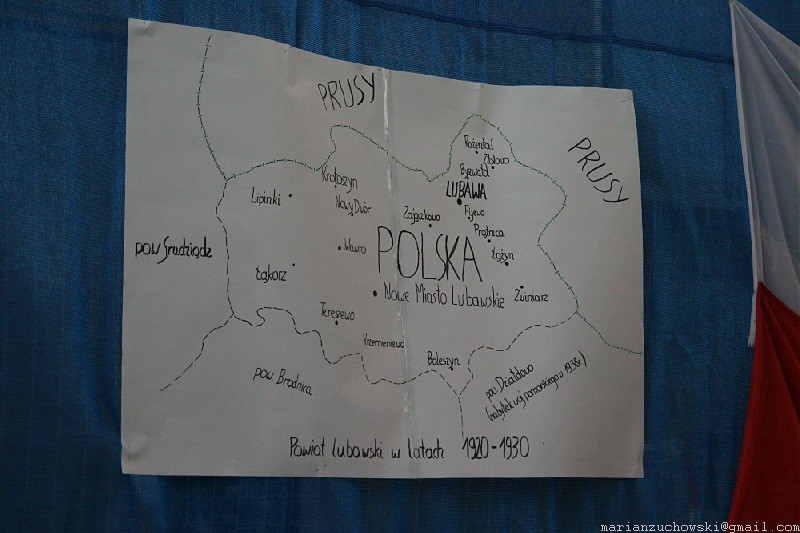 PRUSY
PRUSY
Rożental
Złotowo
Byszwałd
LUBAWA
Fijewo
Prątnica
Łążyn
Zajączkowo
Krotoszyn
Lipinki
Nowy Dwór
Wawro
pow. Grudziądz
Łąkorz
POLSKA
Nowe Miasto Lubawskie
Zwiniarz
Tereszewo
Krzemieniewo
Boleszyn
pow. Brodnica
pow. Działdowo
Powiat Lubawski w latach 1920-1930
marianzuchowski@gmail.com